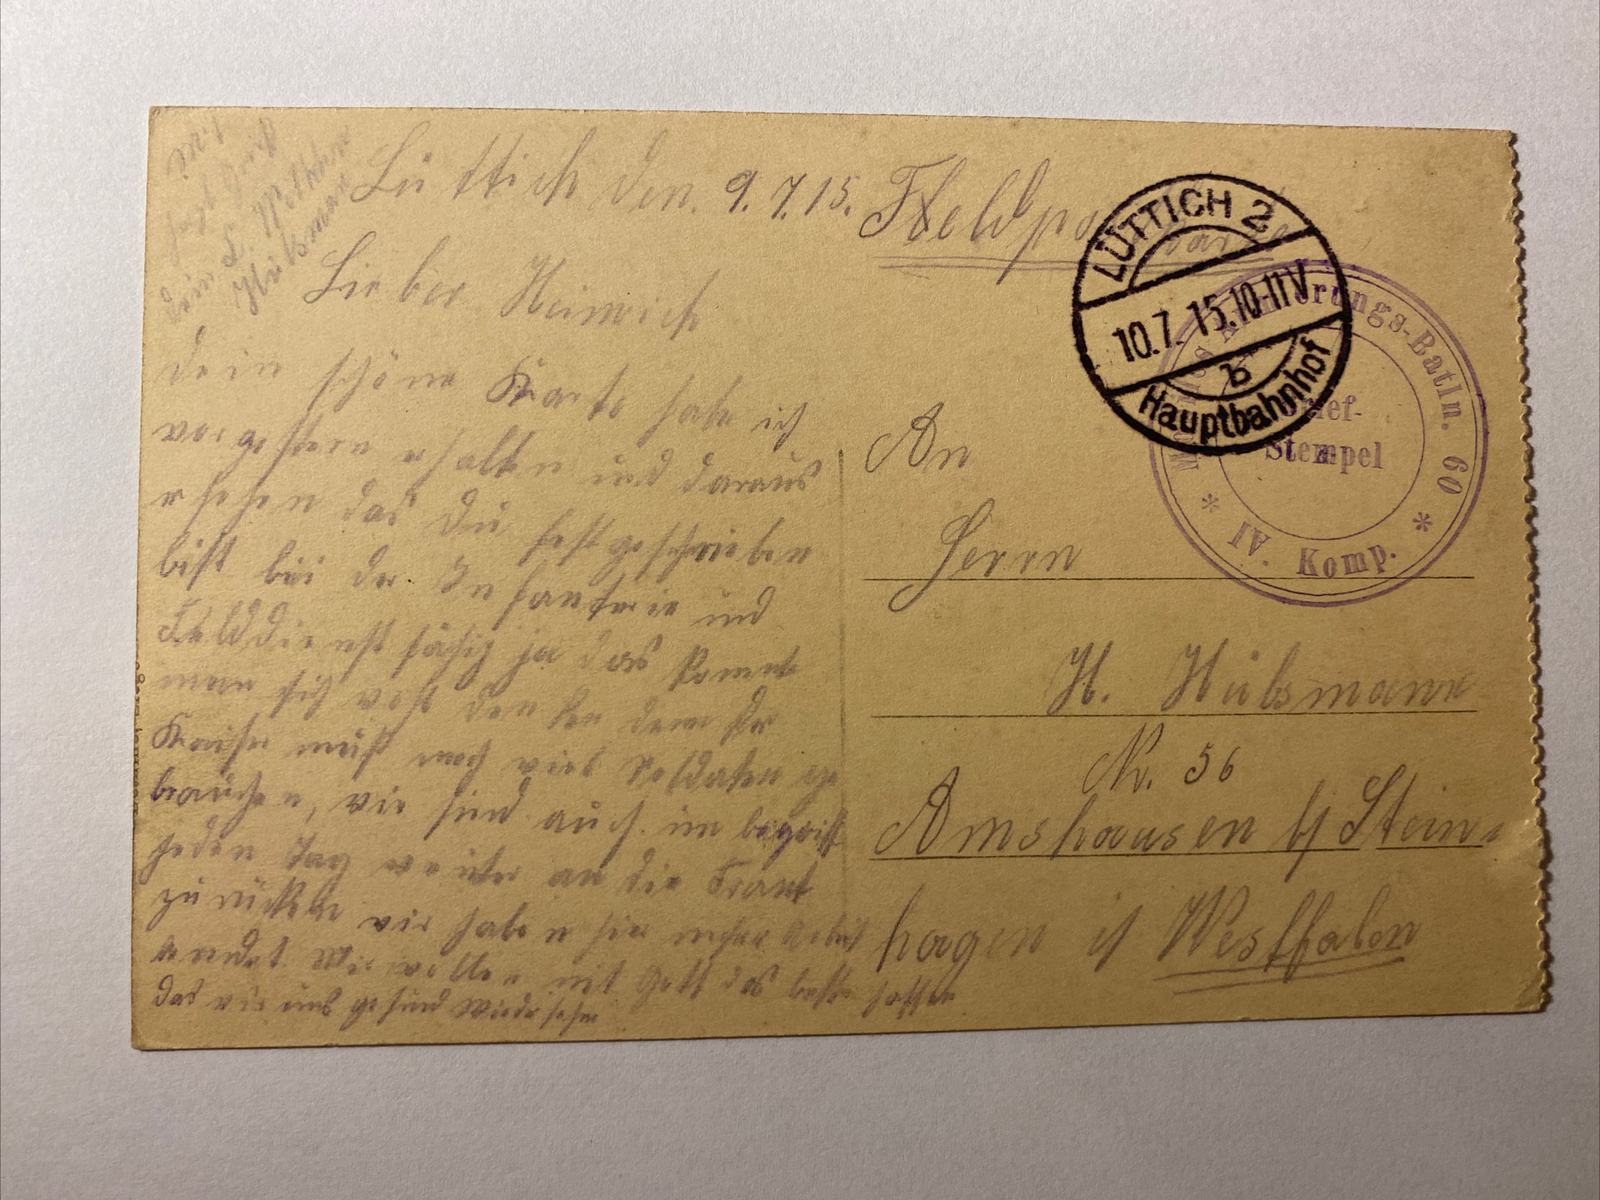 Lüttich den. 9.7.15.
Lieber Heinrich
Dein schöne Karte habe ich
vorgestern erhalten und daraus
ersehen das Du festgeschrieben
bist bei der Infanterie und
Felddienstfähig ja das konnte
man sich wohl denken denn der
Kaiser muß noch viele Soldaten ge
brauchen, wir sind auch im begriff
jeden Tag weiter an die Front
zu rücken wir haben hier
Wir wollen mit Gott das beste hoffen
das wir uns gesund wiedersehn
Mit
Gruß
dein
Hülsmann
Feldpostkarte
LÜTTICH 2
10.7.15.10-11V
b
Hauptbahnhof
Armierungs-Batln. 60
Brief-
Stempel
* IV. Komp. *
An
Herrn
H. Hülsmann
Nr. 56
Amshausen b/ Stein
hagen i/ Westfalen